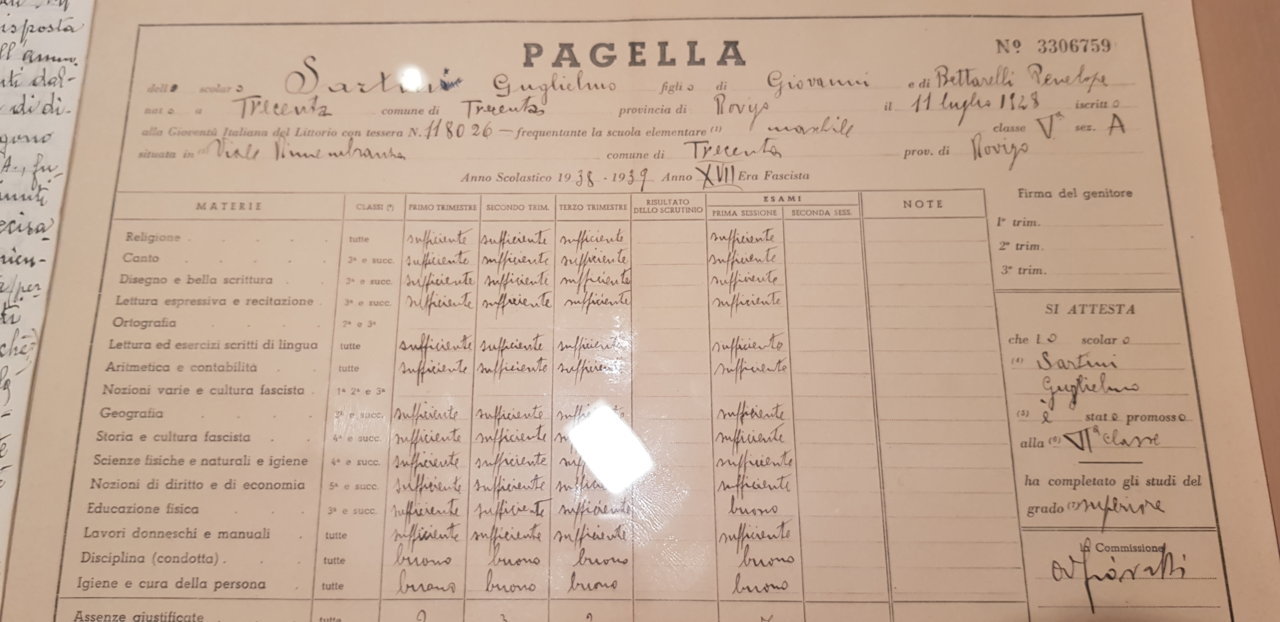 PAGELLA
Nº 3306759
dell scolar o Sartini Guglielmo figli o di Giovanni e di Bettarelli Penelope
nat o a Trecenta comune di Trecenta provincia di Rovigo il 11 luglio 1928 iscritt o
alla Gioventù Italiana del Littorio con tessera N. 118026 — frequentante la scuola elementare (1) maschile classe Vª sez. A
situata in Viale Rimembranza comune di Trecenta prov. di Rovigo
Anno Scolastico 1938 - 1939 Anno XVII Era Fascista
MATERIE CLASSI (*) PRIMO TRIMESTRE SECONDO TRIM. TERZO TRIMESTRE RISULTATO DELLO SCRUTINIO ESAMI PRIMA SESSIONE SECONDA SESS. NOTE
Religione tutte sufficiente sufficiente sufficiente sufficiente
Canto 2ª e succ. sufficiente sufficiente sufficiente sufficiente
Disegno e bella scrittura 2ª e succ. sufficiente sufficiente sufficiente sufficiente
Lettura espressiva e recitazione 3ª e succ. sufficiente sufficiente sufficiente sufficiente
Ortografia 2ª e 3ª
Lettura ed esercizi scritti di lingua tutte sufficiente sufficiente sufficiente sufficiente
Aritmetica e contabilità tutte sufficiente sufficiente sufficiente sufficiente
Nozioni varie e cultura fascista 1ª 2ª e 3ª
Geografia 3ª e succ. sufficiente sufficiente sufficiente sufficiente
Storia e cultura fascista 4ª e succ. sufficiente sufficiente sufficiente
Scienze fisiche e naturali e igiene 4ª e succ. sufficiente sufficiente sufficiente
Nozioni di diritto e di economia 5ª e succ. sufficiente sufficiente sufficiente sufficiente
Educazione fisica 3ª e succ. sufficiente sufficiente sufficiente buono
Lavori donneschi e manuali tutte sufficiente sufficiente sufficiente sufficiente
Disciplina (condotta) tutte buono buono buono buono
Igiene e cura della persona tutte buono buono buono buono
Assenze giustificate tutte
Firma del genitore
1º trim.
2º trim.
3º trim.
SI ATTESTA
che l o scolar o
(4) Sartini
Guglielmo
(5) è stat o promoss o
alla (6) VIª classe
ha completato gli studi del
grado (7) superiore
La Commissione